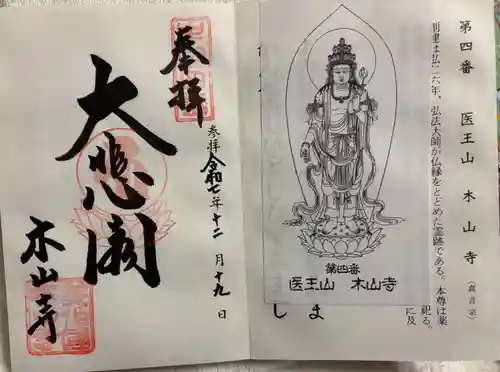 奉拝
参拝 令和七年十二月十九日
大悲閣
木山寺
第四番 医王山 木山寺 (真言宗)
六年、弘法大師が仏縁をとどめた霊跡である。本尊は薬
祀る。
に及
第四番
医王山 木山寺
し ま